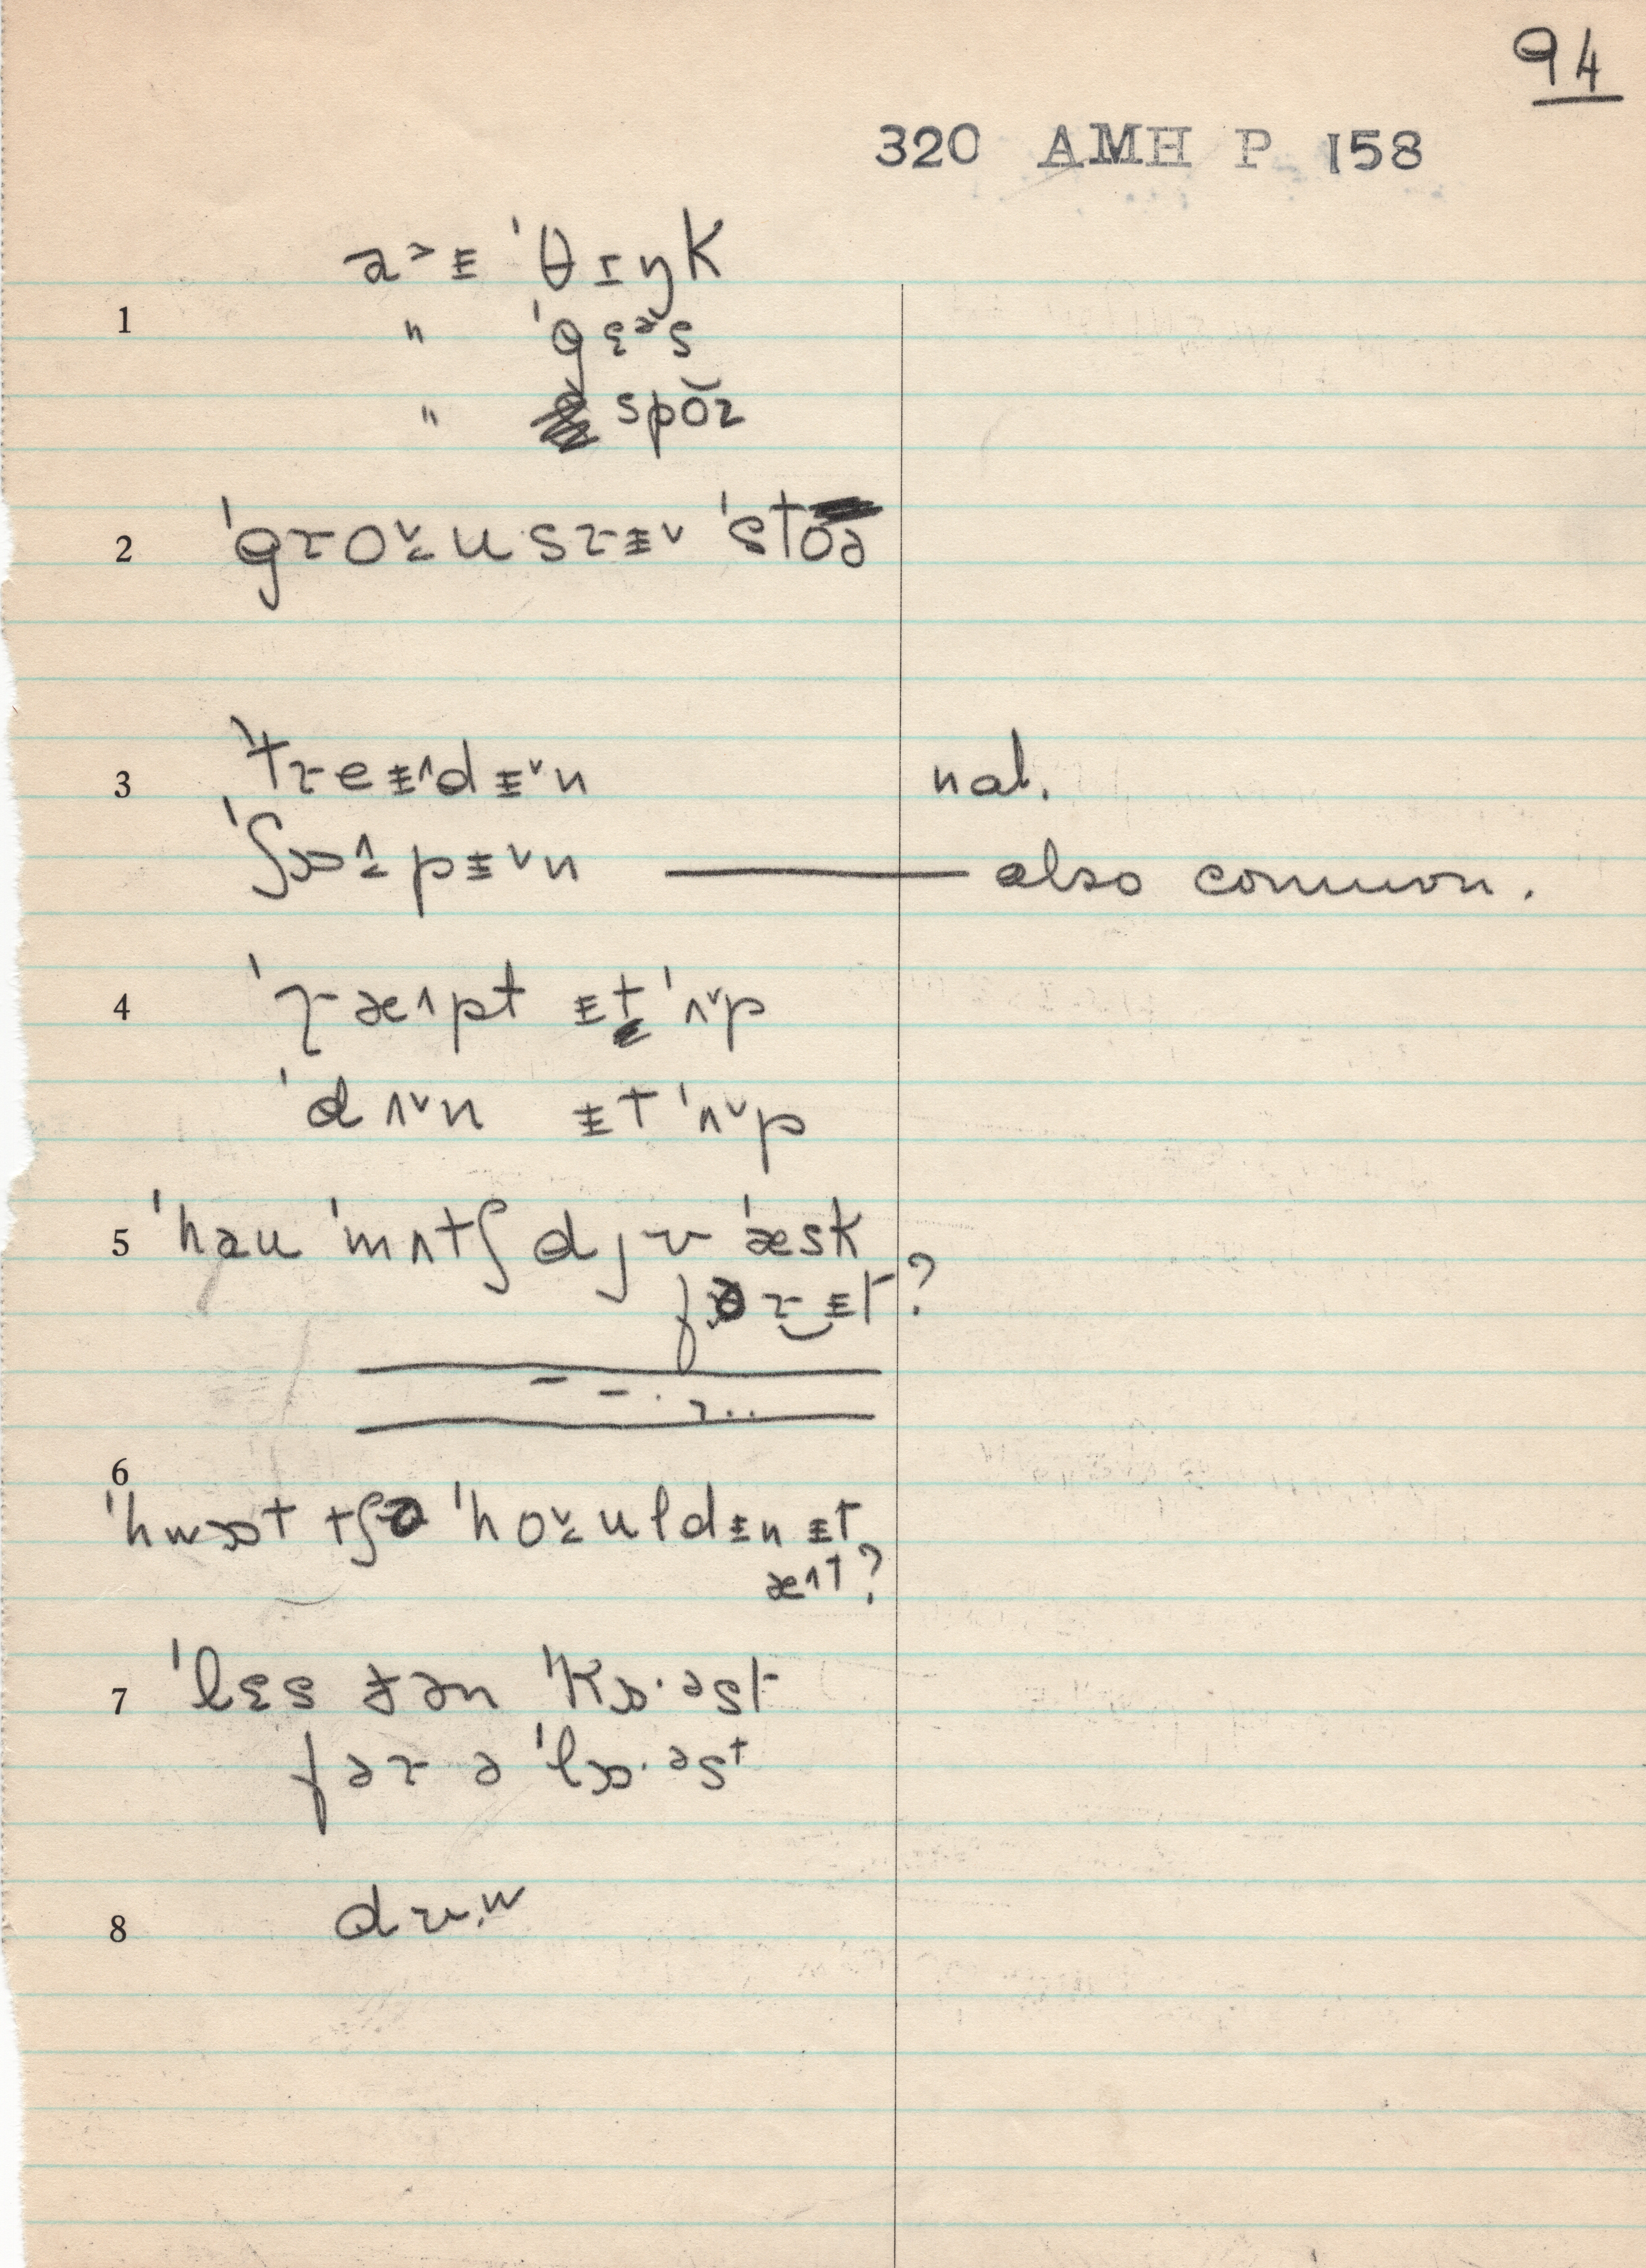 94
320 AMH P 158
a˃ᵻ ˈθɪŋk
1 " ˈgɛᵊs
" spŏɚ
2 ˈgɹo˅̵ʊsɹᵻ˅ ˈstoə
3 ˈtɹeᵻ˄dᵻ˅n nat.
ˈʃɒ˄pᵻ˅n —— also common.
4 ˈɹæ˄pt ᵻt ˈʌ˅p
ˈdʌ˅n ᵻt ˈʌ˅p
5 ˈhau ˈmʌtʃ d j ʊ ˈæsk
fəɹ‿ᵻt?
6
ˈhwɒt tʃə ˈho˅ʊldᵻn ᵻt
æ˄t?
7 ˈlɛs ðən ˈkɒ·əst
fəɹ ə ˈlɒ·əst
8 dɪu.w